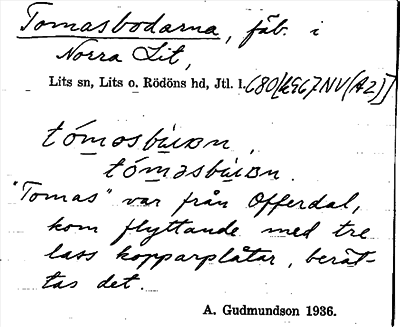 Tomasbodarna, fäb. i
Norra Lit,
Lits sn, Lits o. Rödöns hd, Jtl. l.
tómasbùɯn,
tómǝsbùɯn.
"Tomas" var från Offerdal,
kom flyttande med tre
lass kopparplåtar, berät-
tas det.
A. Gudmundson 1936.